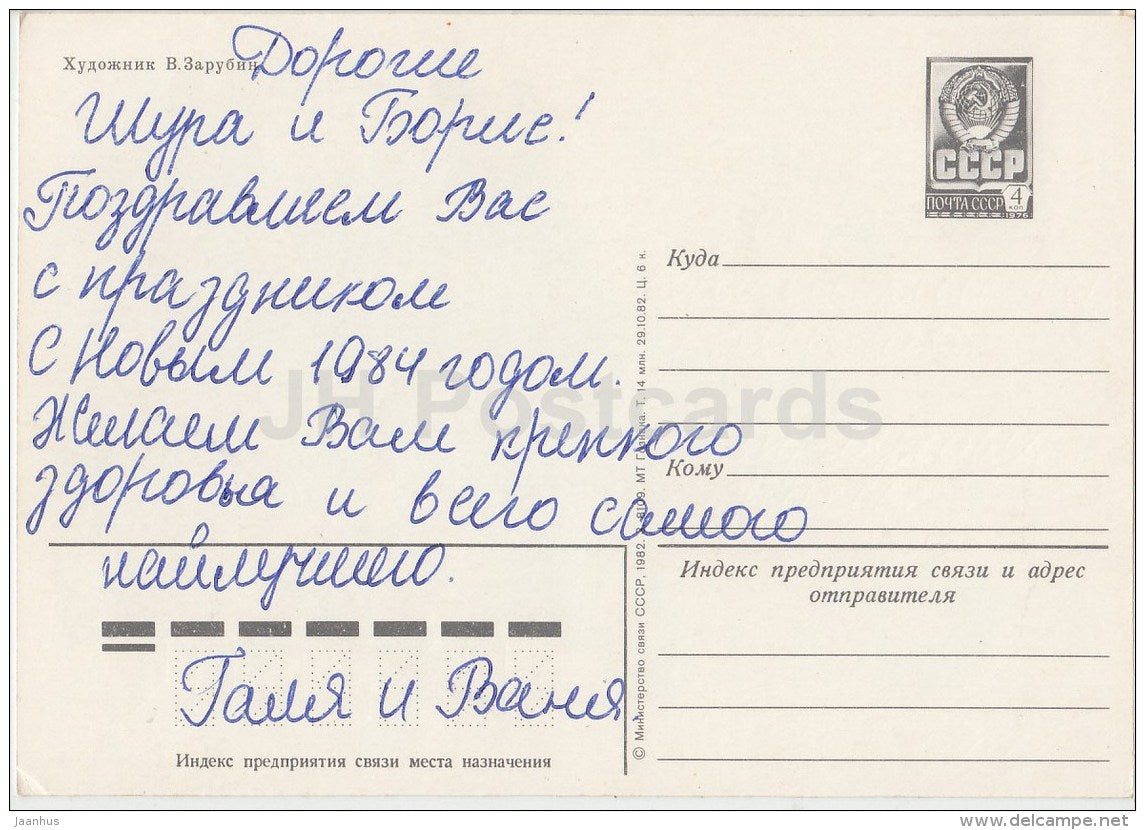 Художник В.Зарубин
Дорогие
Шура и Борис!
Поздравляем Вас
с праздником
С Новым 1984 годом.
Желаем Вам крепкого
здоровья и всего самого
найлучшего.
Галя и Ваня.
Индекс предприятия связи места назначения
СССР
ПОЧТА СССР 4 КОП
1976
Куда
Кому
Индекс предприятия связи и адрес
отправителя
© Министерство связи СССР, 1982. МТ Гознака. Т. 14 млн. 29.10.82. Ц. 6 к.
JH Postcards
Jaanhus
www.delcampe.net